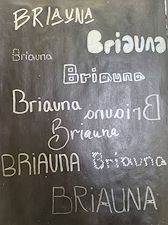 BRIAUNA
Briauna
Briauna
Briauna
Briauna
Briauna
Briauna
BRIAUNA
Briauna
BRIAUNA